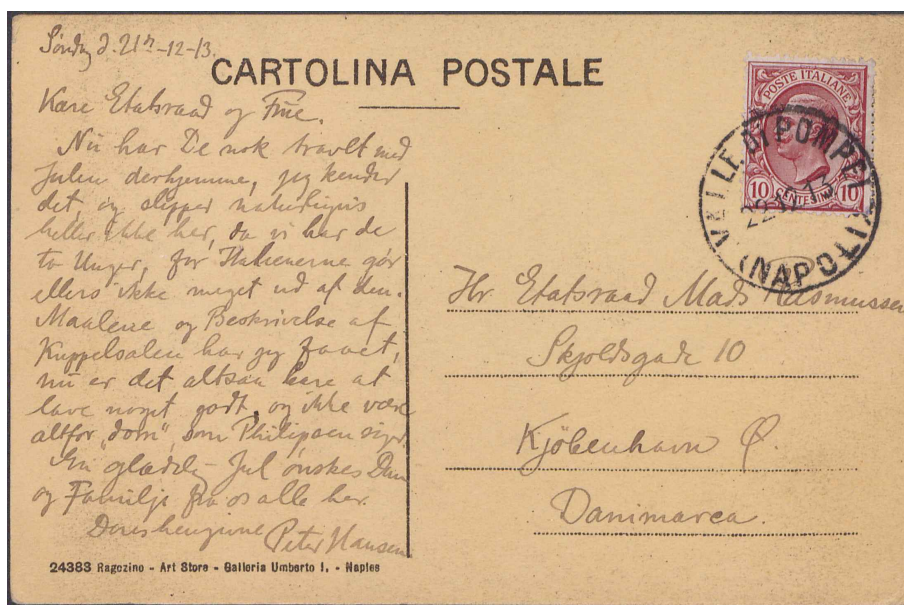 Søndag d. 21de-12-13.
CARTOLINA POSTALE
Kære Etatsraad og Frue.
Nu har De nok travlt med
Julen derhjemme, jeg kender
det, og slipper naturligvis
heller ikke her, da vi har de
to Unger, for Italienerne gør
ellers ikke meget ud af den.
Maalene og Beskrivelse af
Kuppelsalen har jeg faaet,
nu er det altsaa bare at
lave noget godt, og ikke være
altfor "dom", som Philipsen siger.
En glædelig Jul ønskes Dem
og Familje fra os alle her.
Deres hengivne Peter Hansen
24383 Ragozino - Art Store - Galleria Umberto I. - Naples
POSTE ITALIANE
10 CENTESIMI 10
VALLE DI POMPEI
22.12.13
(NAPOLI)
Hr. Etatsraad Mads Rasmussen
Skjoldsgade 10
Kjöbenhavn Ø.
Danimarca.